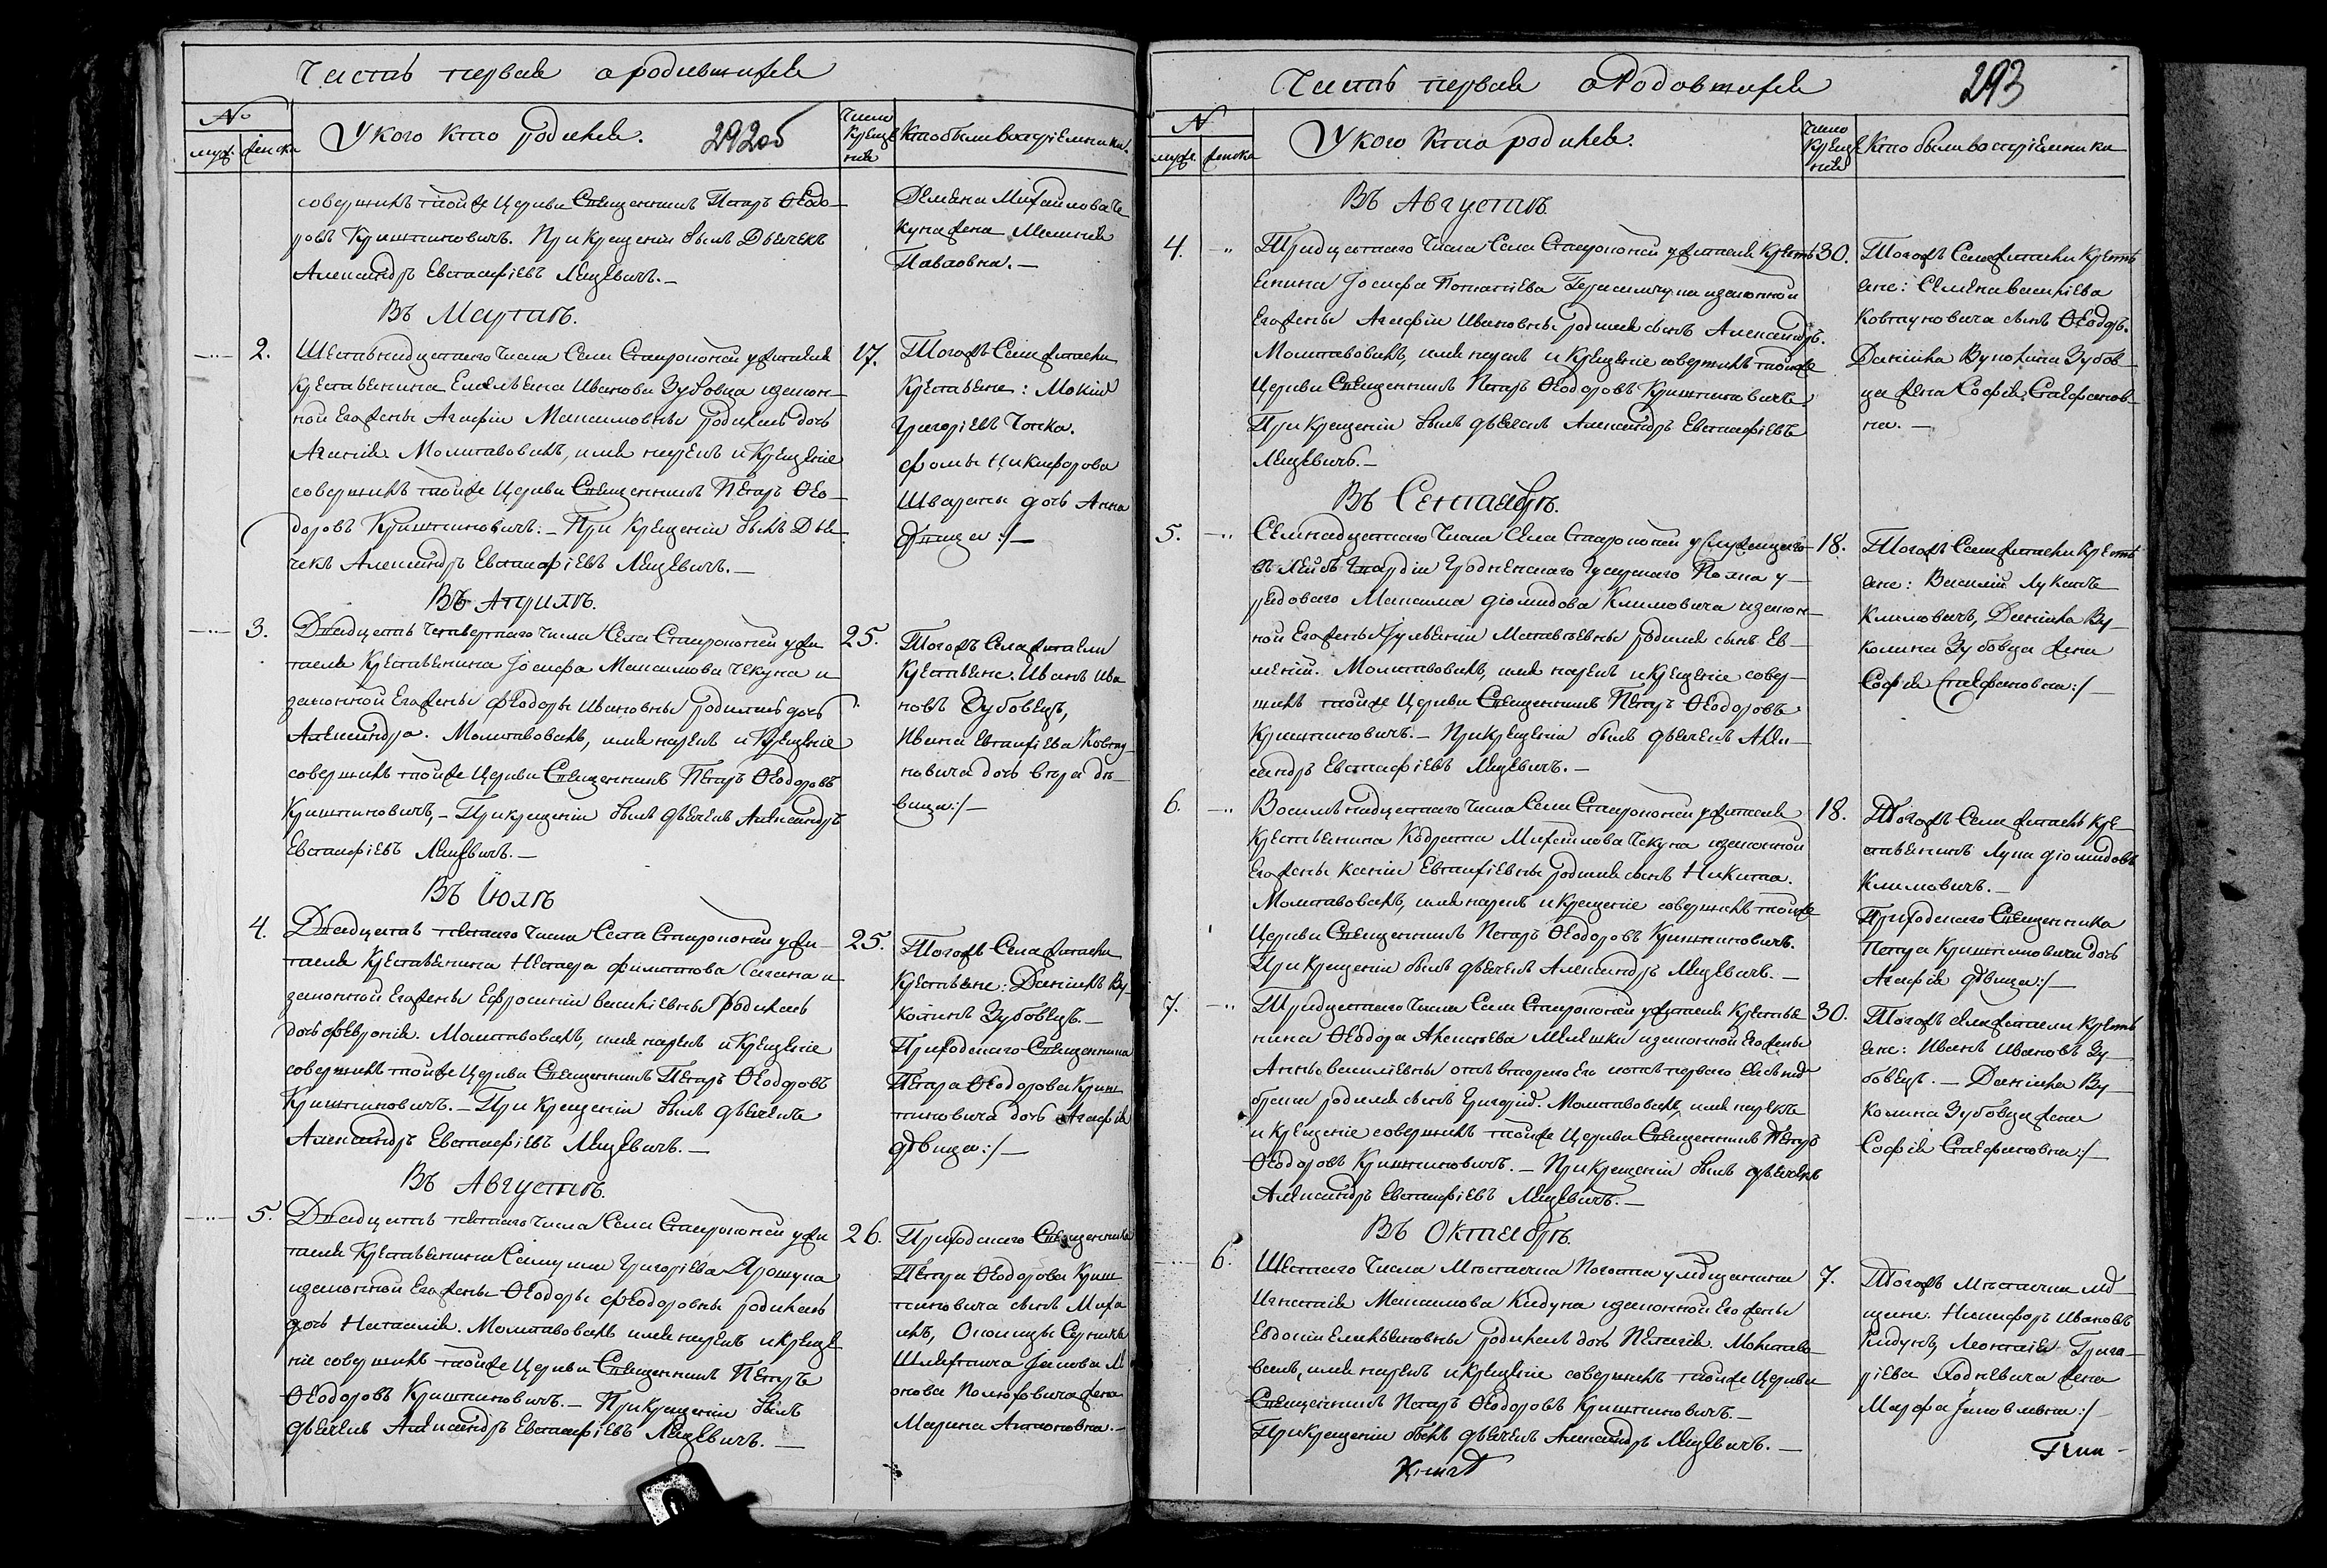 Часть первая о родившихся
№
муж. женска
У кого кто родился.
292об
Число Крещенія
Кто были воспріемники.
совершилъ тойже Церкви Священникъ Петръ Ѳеодо-
ровъ Криштиновичъ. При крещеніи былъ Дьячекъ
Александръ Евстафіевъ Лицевичъ.—
Демяна Михайлова Че
куна жена Меланія
Павловна.—
Въ Мартѣ.
2.
Шестьнадцатаго Числа Села Ставропоках у жителя
крестьянина Емельяна Иванова Зубовца и закон-
ной Его жены Агафіи Максимовны родилась дочь
Агапія. Молитвовалъ, имя нарекъ и Крещеніе
совершилъ тойже Церкви Священникъ Петръ Ѳео-
доровъ Криштиновичъ.— При Крещеніи былъ Дья-
чекъ Александръ Евстафіевъ Лицевичъ.—
17.
Тогожъ Села жители
Крестьяне: Мокій
Григоріевъ Чопка.
Фомы Никифорова
дочь Анна
дѣвица:/—
Въ Апрѣлѣ.
3.
Двадцать четвертаго Числа Села у жи
теля Крестьянина Іосифа Максимова Чекуна и
законной Его жены Феодоры Ивановны родилась дочь
Александра. Молитвовалъ, имя нарекъ и Крещеніе
совершилъ тойже Церкви Священникъ Петръ Ѳеодоровъ
Криштиновичъ,— При крещеніи былъ дьячекъ Александръ
Евстафіевъ Лицевичъ.—
25.
Тогожъ Села жители
Крестьяне. Иванъ Ива
новъ Зубовецъ,
Ивана Евтихіева Ковту-
новича дочь Вера дѣ-
вица:/—
Въ Іюлѣ
4.
Двадцать пятаго Числа Села у жи-
теля Крестьянина Нестера Филиппова и
законной Его жены Ефросиніи Василіевны родилась
дочь Февронія. Молитвовалъ, имя нарекъ и Крещеніе
совершилъ тойже Церкви Священникъ Петръ Ѳеодоровъ
Криштиновичъ.— При Крещеніи былъ дьячекъ
Александръ Евстафіевъ Лицевичъ.—
25.
Тогожъ Села жители
Крестьяне: Даніилъ Ву-
колинъ Зубовецъ.—
Приходскаго Священника
Петра Ѳеодорова Криш
тиновича дочь Агафія
дѣвица:/—
Въ Августѣ.
5.
Двадцать пятаго Числа Села у жи
теля Крестьянина Самуила Григоріева
и законной Его жены Ѳеодоры Феодоровны родилась
дочь Наталія. Молитвовалъ имя нарекъ и Креще
ніе совершилъ тойже Церкви Священникъ Петръ
Ѳеодоровъ Криштиновичъ.— При крещеніи былъ
дьячекъ Александръ Евстафіевъ Лицевичъ.—
26.
Приходскаго Священника
Петра Ѳеодорова Криш
тиновича сынъ Миха
илъ,
жена
Марина Антоновна.—
Часть первая о Родовшихся
293
№
муже. женска
У кого кто родился.
Число Крещенія
Кто были воспріемники
Въ Августѣ.
4.
Тридцатаго Числа Села у жителя Кресть
янина Іосифа и законной
Его жены Агафіи Ивановны родился сынъ Александръ.
Молитвовалъ, имя нарекъ и Крещеніе совершилъ тойже
Церкви Священникъ Петръ Ѳеодоровъ Криштиновичъ.
При крещеніи былъ дьячекъ Александръ Евстафіевъ
Лицевичъ.—
30.
Тогожъ Села жители Кресть
яне: Семіона Василіева
Ковтуновича сынъ Ѳеодоръ.
Даніила Вуколина Зубов-
ца жена Софія Стефанов-
на.—
Въ Сентябрѣ.
5.
Семнадцатаго Числа Села у служащаго
въ Лейбъ Гвардіи Гродненскаго Гусарскаго Полка у
рядоваго Максима Діомидова Климовича и закон-
ной Его жены Іуліаніи Матвѣевны родился сынъ Ев-
меній. Молитвовалъ, имя нарекъ и крещеніе совер-
шилъ тойже Церкви Священникъ Петръ Ѳеодоровъ
Криштиновичъ.— При крещеніи былъ дьячекъ Алек-
сандръ Евстафіевъ Лицевичъ.—
18.
Тогожъ Села жители Кресть
яне: Василій Лукинъ
Климовичъ, Даніила Ву-
колина Зубовца жена
Софія Стефановна:/—
6.
Восьмнадцатаго Числа Села у жителя
Крестьянина Кодрата Михайлова Чекуна и законной
Его жены Ксеніи Евтихіевны родился сынъ Никита.
Молитвовалъ, имя нарекъ и крещеніе совершилъ тойже
Церкви Священникъ Петръ Ѳеодоровъ Криштиновичъ.
При крещеніи былъ дьячекъ Александръ Лицевичъ.—
18.
Тогожъ Села житель Кре-
стьянинъ Лука Діомидовъ
Климовичъ.—
Приходскаго Священника
Петра Криштиновича дочь
Агафія дѣвица:/—
7.
Тридцатаго Числа Села у жителя Крестья
нина Ѳеодора и законной Его жены
Анны Василіевны отъ втораго Его и отъ перваго Ея
брака родился сынъ Григорій. Молитвовалъ, имя нарекъ
и Крещеніе совершилъ тойже Церкви Священникъ Петръ
Ѳеодоровъ Криштиновичъ.— При крещеніи былъ дьячекъ
Александръ Евстафіевъ Лицевичъ.—
30.
Тогожъ села жители Кресть
яне: Иванъ Ивановъ Зу-
бовецъ.— Даніила Ву-
колина Зубовца жена
Софія Стефановна:/—
Въ Октябрѣ.
6.
Шестаго Числа Мѣстечка Погоста у мѣщанина
Игнатія Максимова Кидуна и законной Его жены
Евдокіи Емильяновны родилась дочь Пелагія. Молитво-
валъ, имя нарекъ и крещеніе совершилъ тойже Церкви
Священникъ Петръ Ѳеодоровъ Криштиновичъ.—
При крещеніи былъ дьячекъ Александръ Лицевичъ.—
7.
Тогожъ Мѣстечка мѣ-
щане: Никифоръ Ивановъ
Кидунъ, Леонтія Григо-
ріева жена
Марфа Іаковлевна:/—